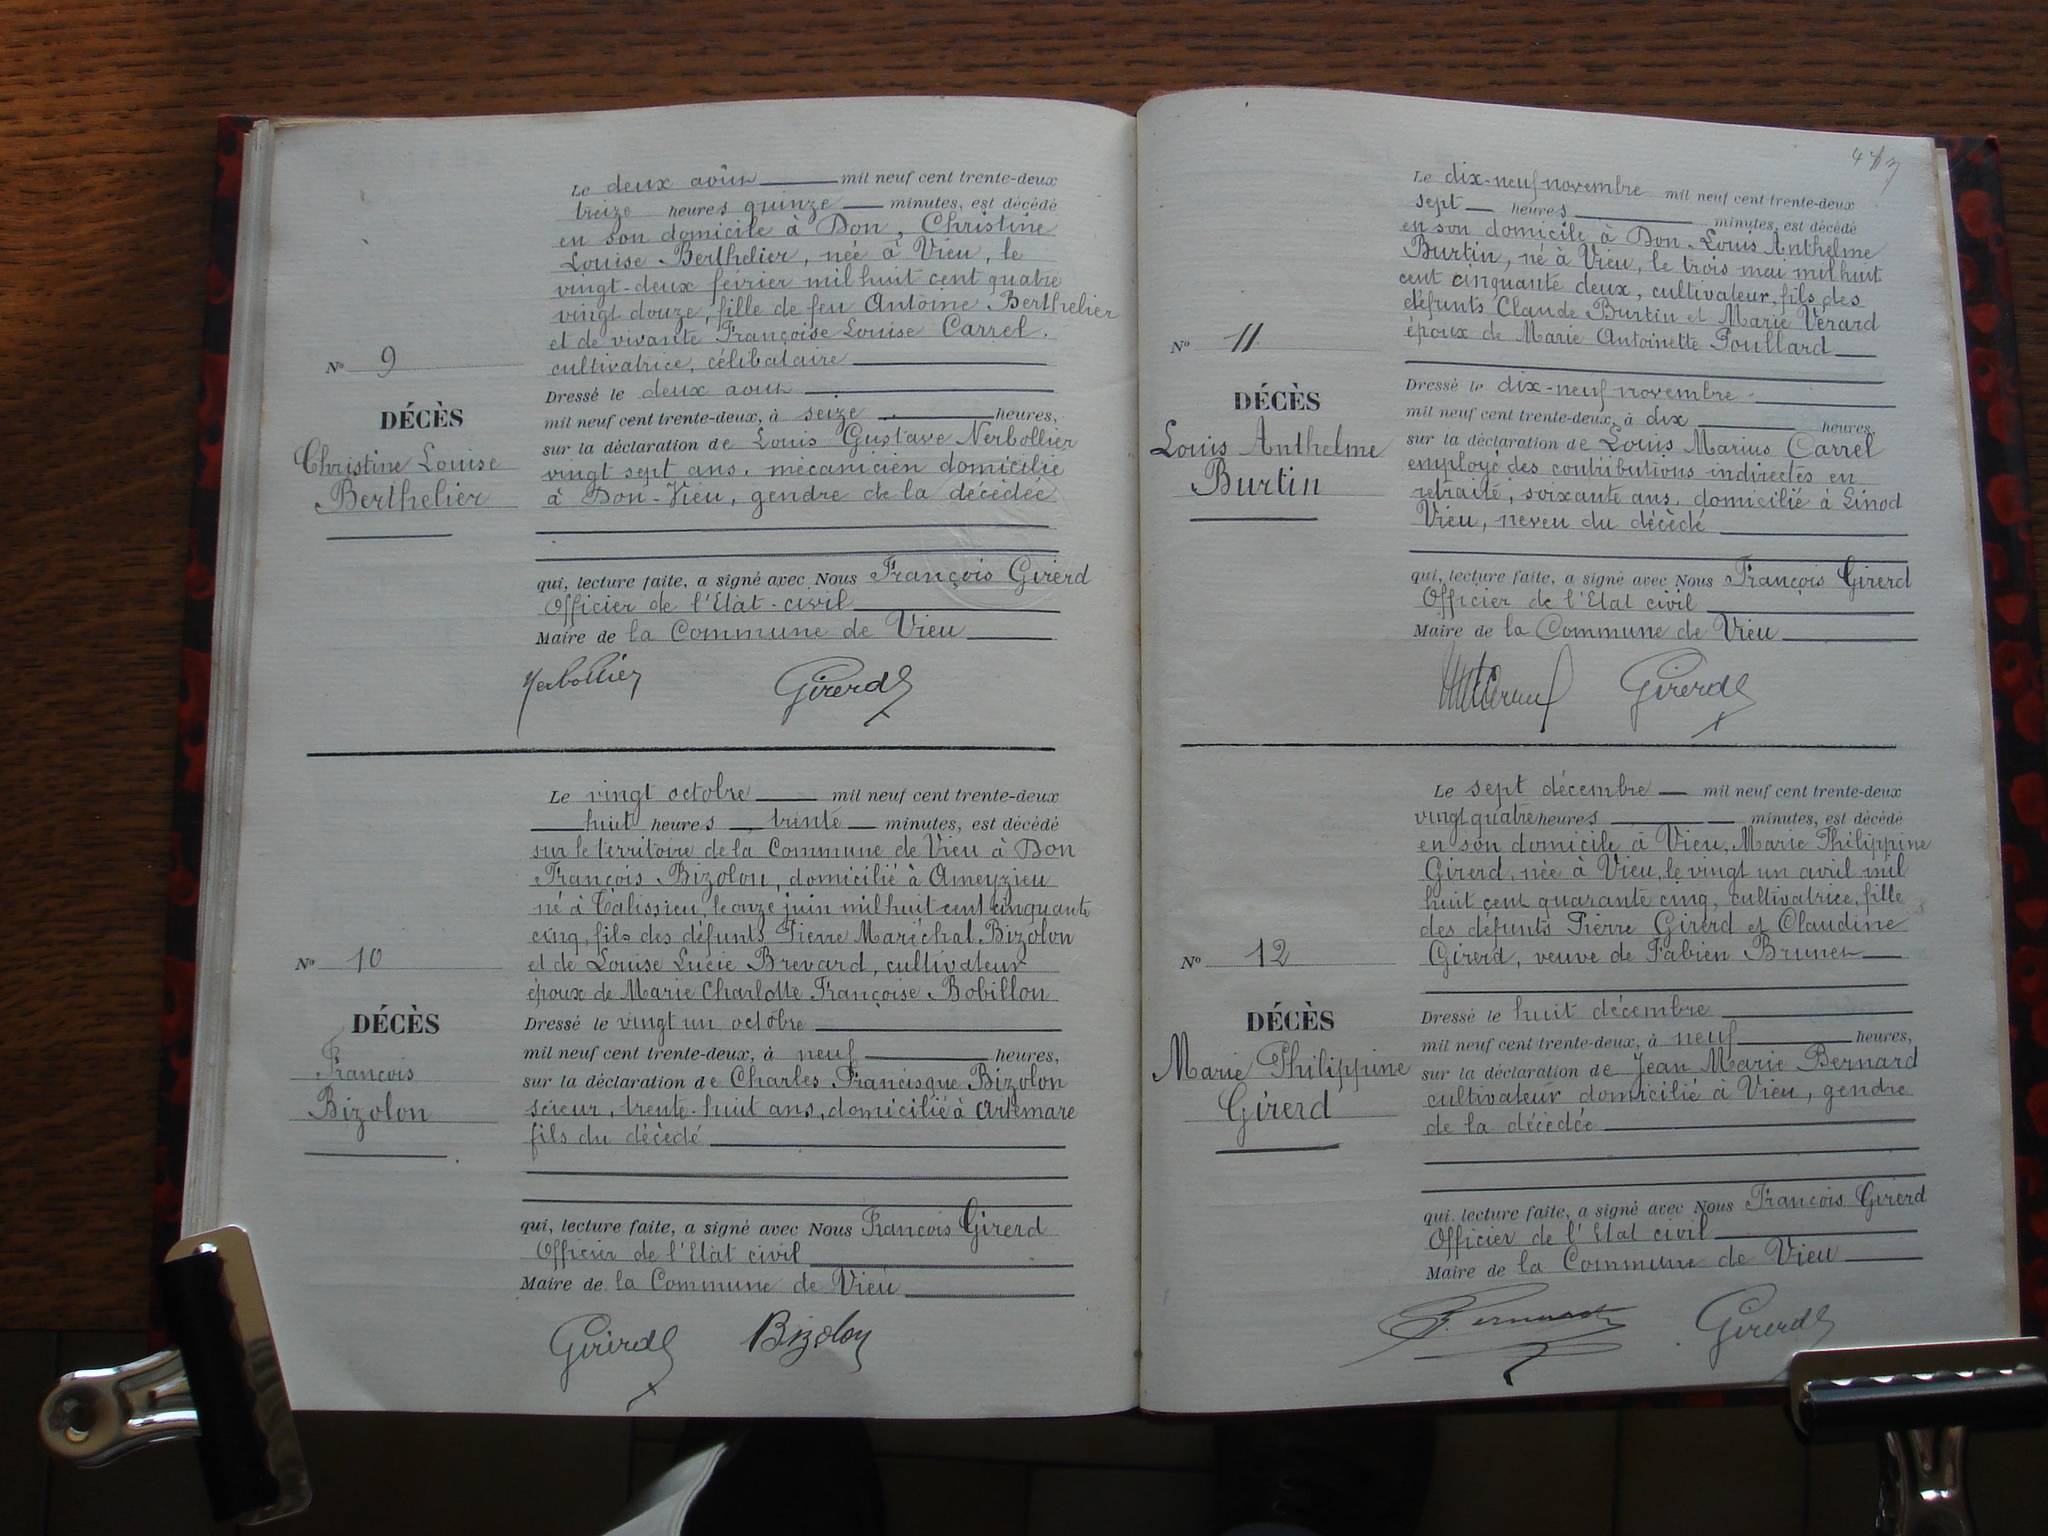 Le deux août mil neuf cent trente-deux
treize heures quinze minutes, est décédé
en son domicile à Don, Christine
Louise Berthelier, née à Vieu, le
vingt-deux février mil huit cent quatre
vingt douze, fille de feu Antoine Berthelier
et de vivante Françoise Louise Carrel.
cultivatrice, célibataire
Nº 9
DÉCÈS
Christine Louise
Berthelier
Dressé le deux août
mil neuf cent trente-deux, à seize heures,
sur la déclaration de Louis Gustave Nerbollier
vingt sept ans, mécanicien domicilié
à Don-Vieu, gendre de la décédée
qui, lecture faite, a signé avec Nous François Girerd
Officier de l'Etat-civil
Maire de la Commune de Vieu
Nerbollier Girerd
Le vingt octobre mil neuf cent trente-deux
huit heures trente minutes, est décédé
sur le territoire de la Commune de Vieu à Don
François Bizolon, domicilié à Ameyzieu
né à Talissieu, le onze juin mil huit cent cinquante
cinq, fils des défunts Pierre Maréchal Bizolon
et de Louise Lucie Brevard, cultivateur
époux de Marie Charlotte Françoise Bobillon
Nº 10
DÉCÈS
François
Bizolon
Dressé le vingt un octobre
mil neuf cent trente-deux, à neuf heures,
sur la déclaration de Charles Francisque Bizolon
scieur, trente-huit ans, domicilié à Artemare
fils du décédé
qui, lecture faite, a signé avec Nous François Girerd
Officier de l'Etat civil
Maire de la Commune de Vieu
Girerd Bizolon
Le dix-neuf novembre mil neuf cent trente-deux
sept heures minutes, est décédé
en son domicile à Don, Louis Anthelme
Burtin, né à Vieu, le trois mai mil huit
cent cinquante deux, cultivateur, fils des
défunts Claude Burtin et Marie Vérard
époux de Marie Antoinette Poullard
Nº 11
DÉCÈS
Louis Anthelme
Burtin
Dressé le dix-neuf novembre
mil neuf cent trente-deux, à dix heures,
sur la déclaration de Louis Marius Carrel
employé des contributions indirectes en
retraite, soixante ans, domicilié à Linod
Vieu, neveu du décédé
qui, lecture faite, a signé avec Nous François Girerd
Officier de l'Etat civil
Maire de la Commune de Vieu
Girerd
Le sept décembre mil neuf cent trente-deux
vingt quatre heures minutes, est décédé
en son domicile à Vieu, Marie Philippine
Girerd, née à Vieu, le vingt un avril mil
huit cent quarante cinq, cultivatrice, fille
des défunts Pierre Girerd et Claudine
Girerd, veuve de Fabien Brunet
Nº 12
DÉCÈS
Marie Philippine
Girerd
Dressé le huit décembre
mil neuf cent trente-deux, à neuf heures,
sur la déclaration de Jean Marie Bernard
cultivateur domicilié à Vieu, gendre
de la décédée
qui, lecture faite, a signé avec Nous François Girerd
Officier de l'Etat civil
Maire de la Commune de Vieu
Bernard Girerd